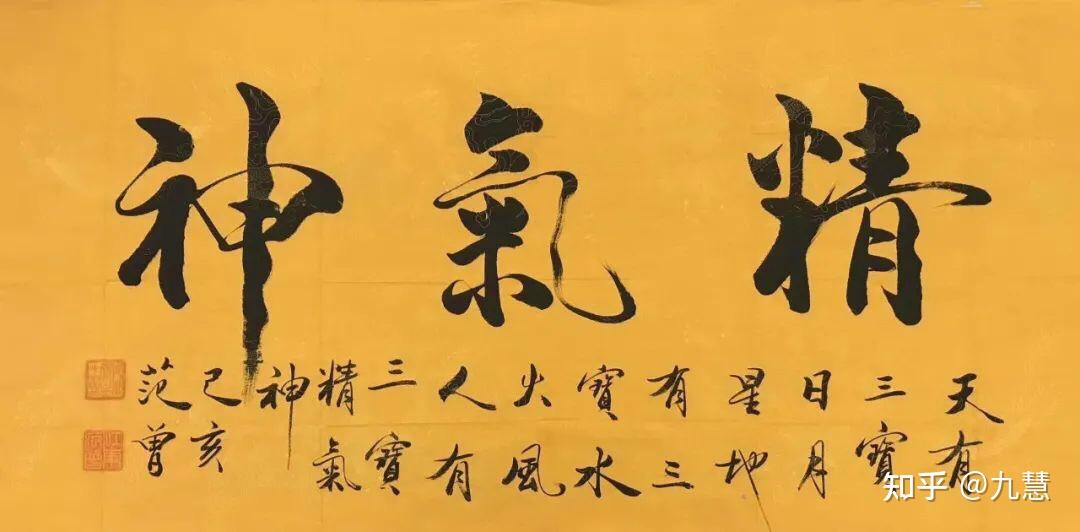 精氣神
天有
三寶
日月
星地
有三
寶水
火風
人有
三寶
精氣
神
己亥
范曾
知乎 @九慧